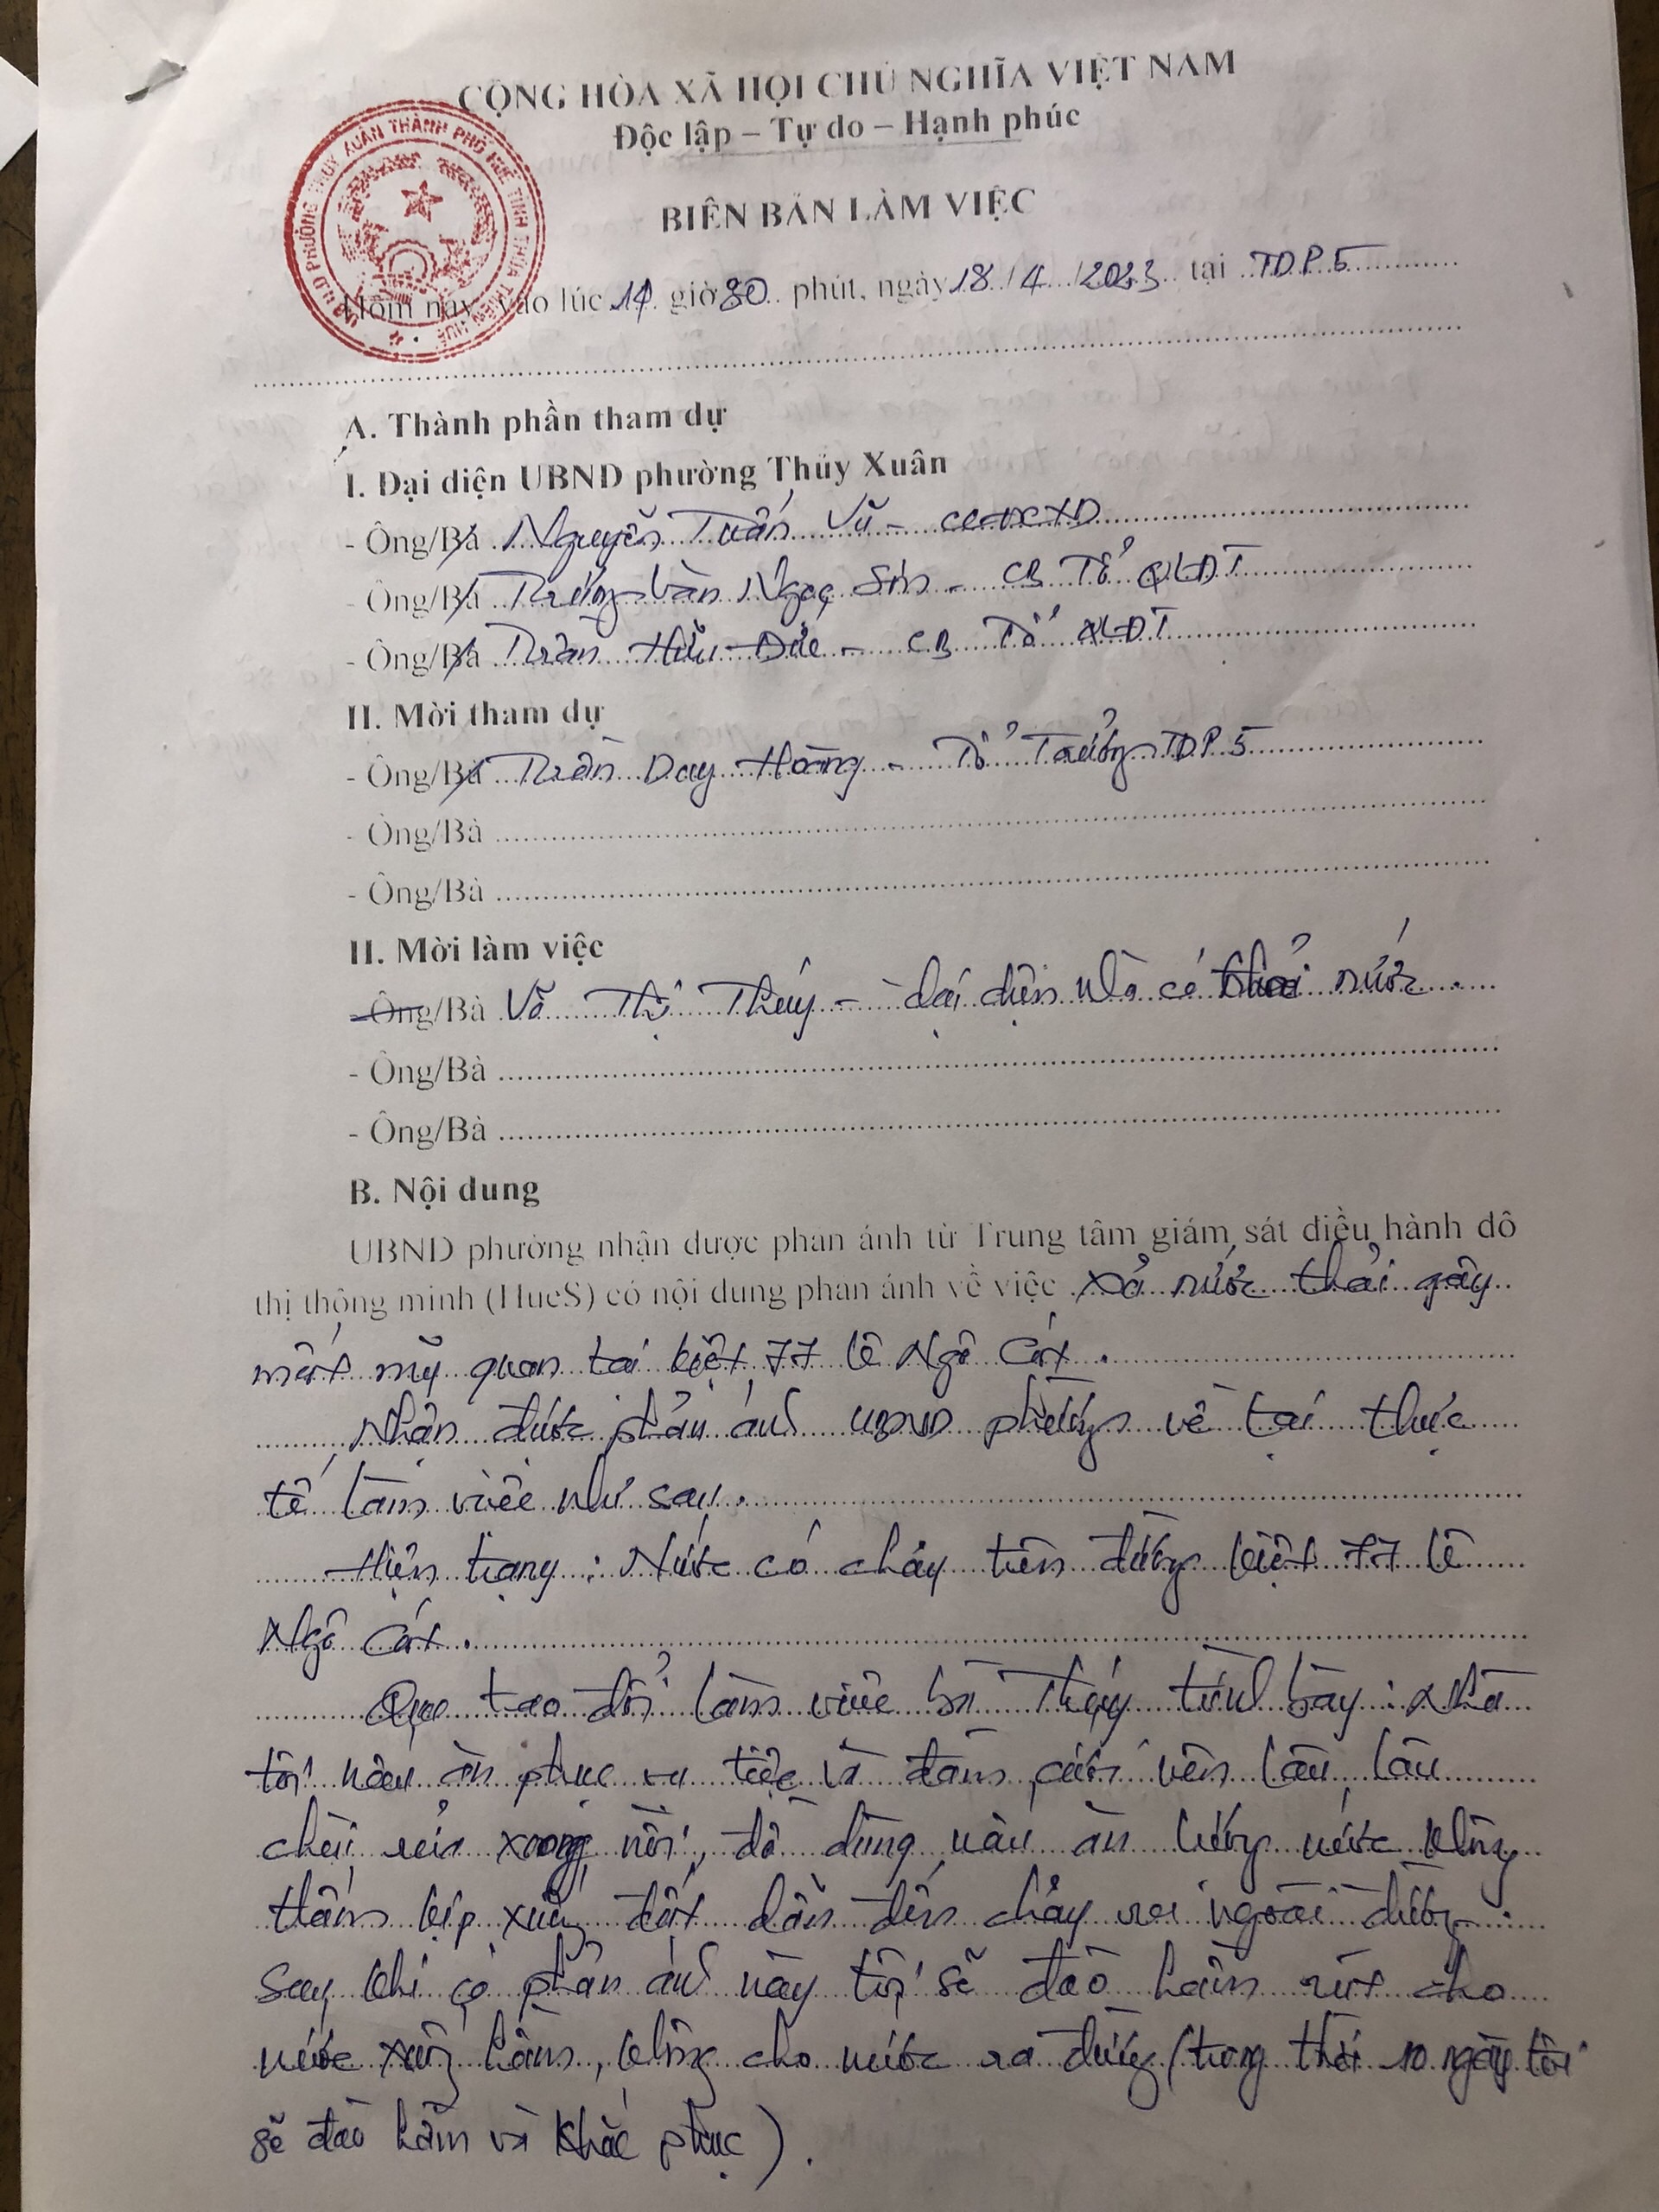 CỘNG HÒA XÃ HỘI CHỦ NGHĨA VIỆT NAM
Độc lập – Tự do – Hạnh phúc
BIÊN BẢN LÀM VIỆC
U.B.N.D PHƯỜNG THỦY XUÂN THÀNH PHỐ HUẾ TỈNH THỪA THIÊN HUẾ
Hôm nay, vào lúc giờ 30 phút, ngày 18/4/2023 tại TDP.5
A. Thành phần tham dự
I. Đại diện UBND phường Thủy Xuân
- Ông/Bà Nguyễn Tuấn Vũ -
- Ông/Bà Trương Văn Ngọc Sơn - CB Tổ QLĐT
- Ông/Bà Trần Hữu Đức - CB Tổ QLĐT
II. Mời tham dự
- Ông/Bà Trần Duy Hoàng - Tổ Trưởng TDP.5
- Ông/Bà
- Ông/Bà
II. Mời làm việc
- Ông/Bà Võ Thị Thúy - đại diện nhà có thải nước.
- Ông/Bà
- Ông/Bà
B. Nội dung
UBND phường nhận được phản ánh từ Trung tâm giám sát điều hành đô
thị thông minh (HueS) có nội dung phản ánh về việc xả nước thải gây
mất mỹ quan tại kiệt 77 Lê Ngô Cát.
Nhận được phản ánh UBND phường về tại thực
tế làm việc như sau.
Hiện trạng: Nước có chảy trên đường kiệt 77 Lê
Ngô Cát.
Qua trao đổi làm việc bà Thúy trình bày: Nhà
tôi nấu ăn phục vụ tiệc và đám cưới nên lâu lâu
rửa xoong nồi, đồ dùng nấu ăn lượng nước không
thấm kịp xuống đất dẫn đến chảy ra ngoài đường.
Sau khi có phản ánh này tôi sẽ đào hầm rút cho
nước xuống hầm, không cho nước ra đường (trong thời 10 ngày tôi
sẽ đào hầm và khắc phục).